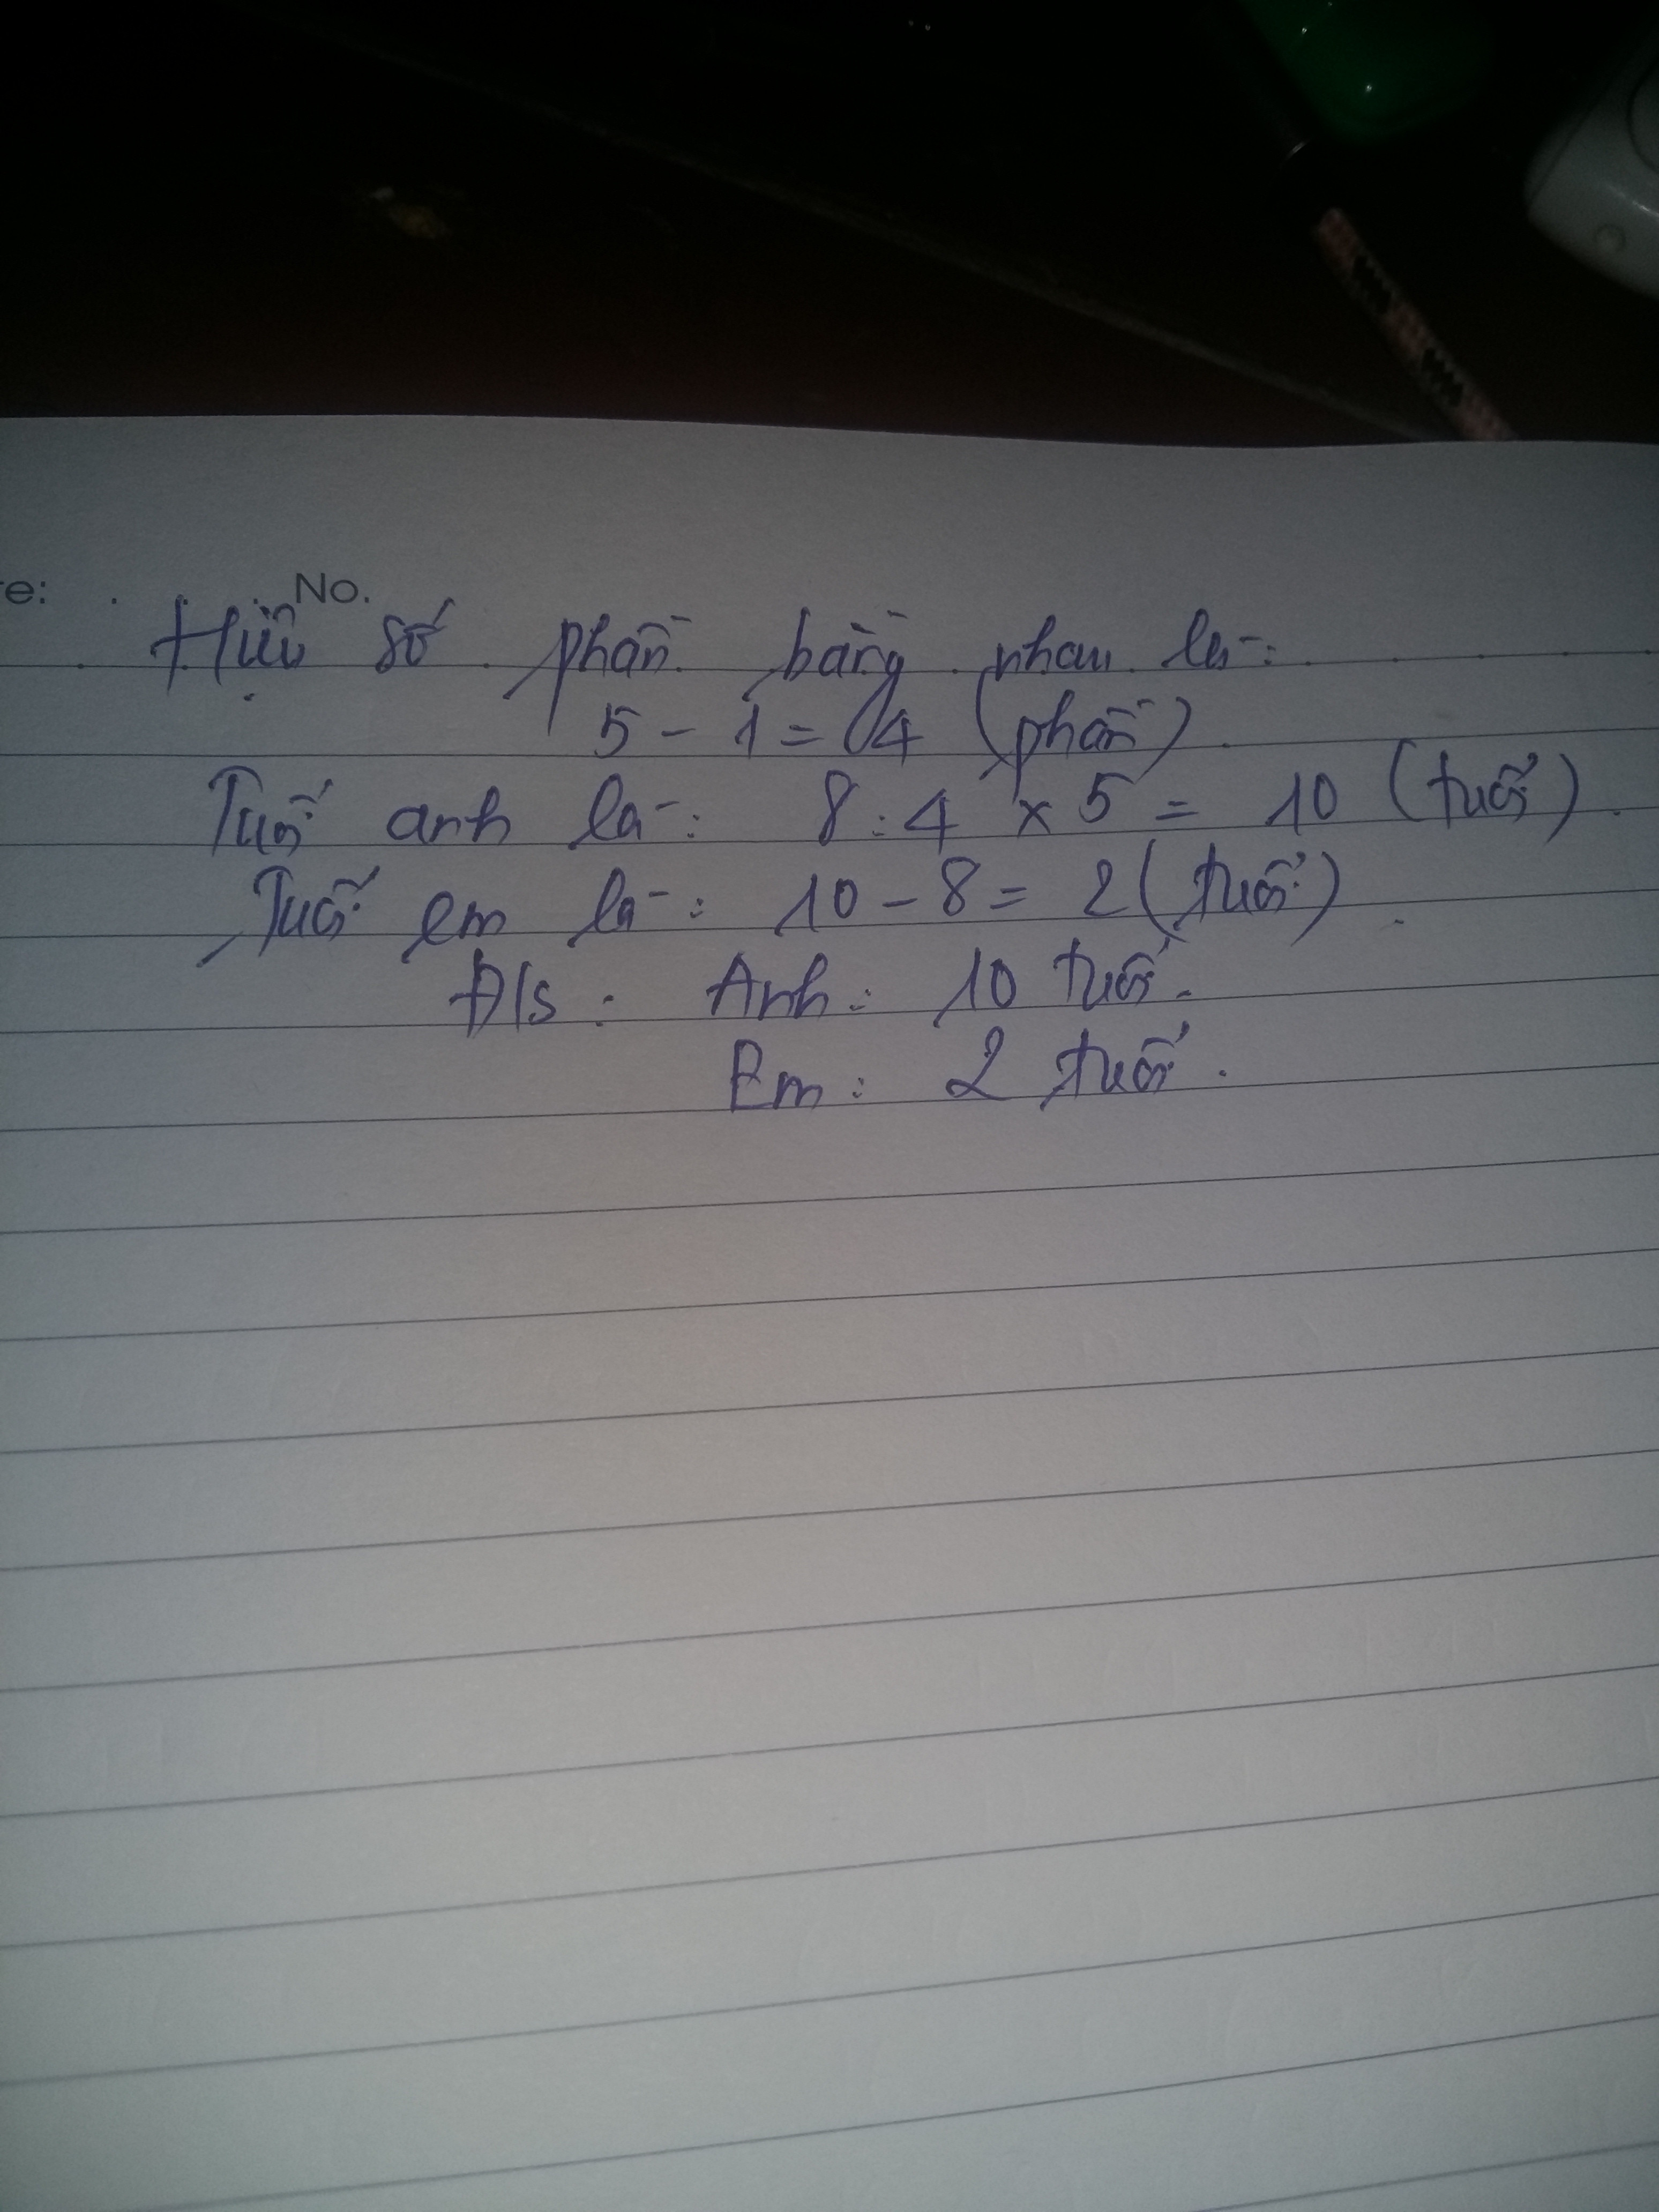 te: No.
Hiệu số phần bằng nhau là:
5 - 1 = 4 (phần)
Tuổi anh là: 8 : 4 x 5 = 10 (tuổi).
Tuổi em là: 10 - 8 = 2 (tuổi).
Đ/s: Anh: 10 tuổi.
Em: 2 tuổi.